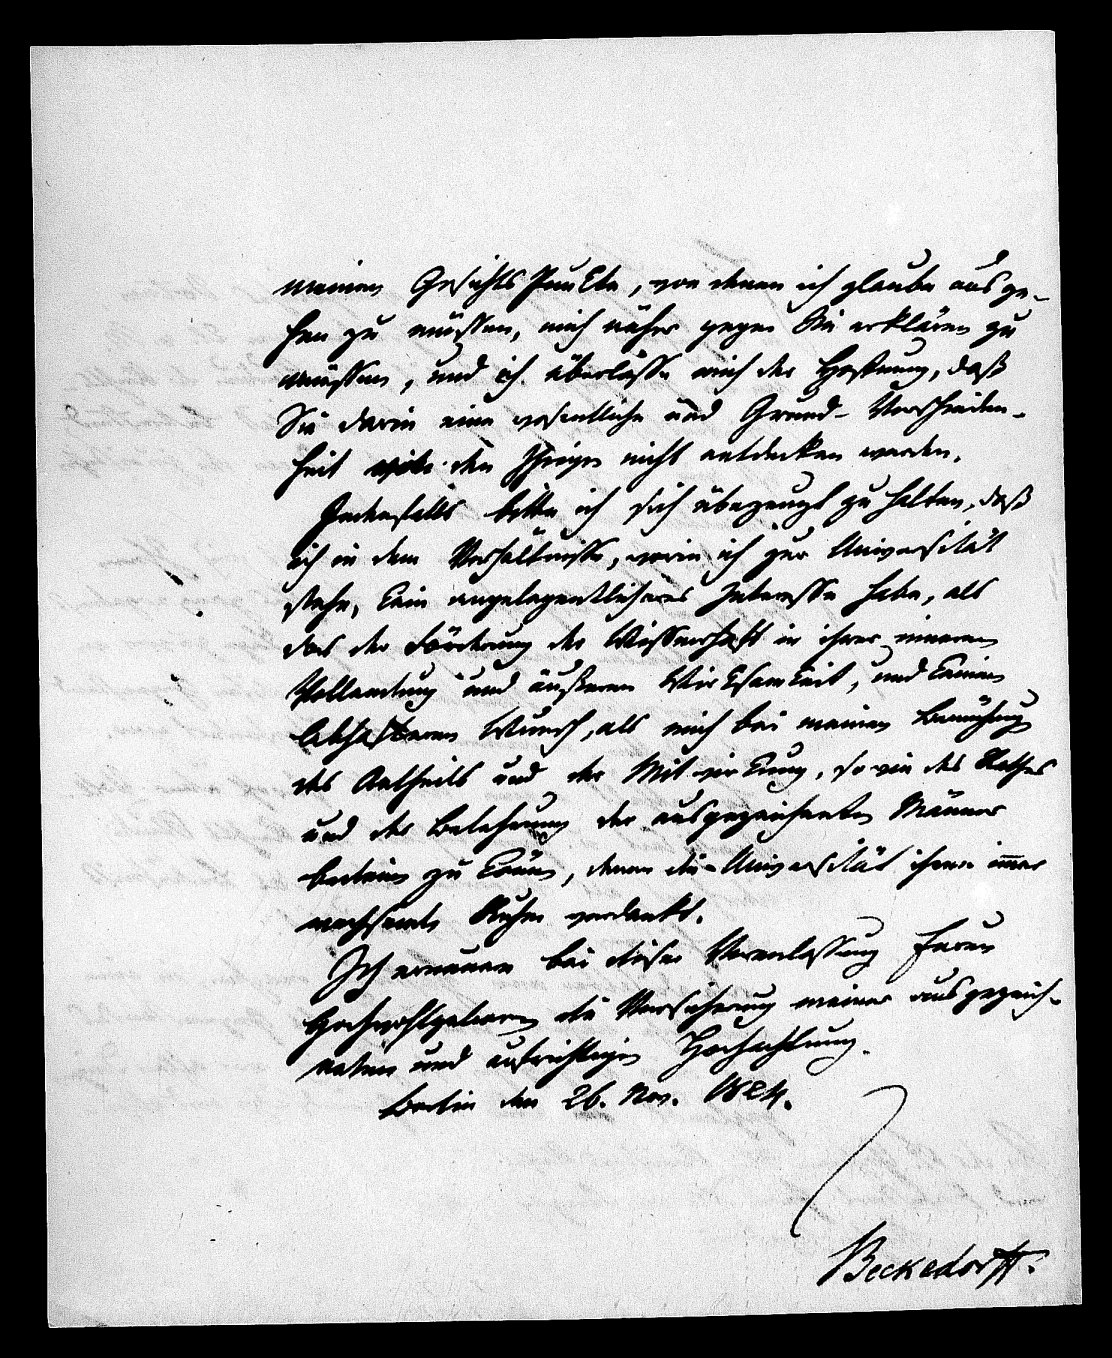 meinen Gesichts Punkte, von denen ich glaube ausge-
hen zu müssen, mich näher gegen Sie erklären zu
müssen, und ich überlasse mich der Hoffnung, daß
Sie darin eine wesentliche und Grund-Verschieden-
heit von den Ihrigen nicht entdecken werden.
Jedenfalls bitte ich sich überzeugt zu halten, daß
ich in dem Verhältnisse, worin ich zur Universität
stehe, kein angelegentlicheres Interesse habe, als
das der Förderung der Wissenschaft in ihrer inneren
Vollendung und äußeren Wirksamkeit, und keinen
lebhafteren Wunsch, als mich bei meinen Bemühungen
des Antheils und der Mitwirkung, so wie des Rathes
und der Belehrung der ausgezeichneten Männer
bedienen zu können, denen die Universität ihren immer
wachsenden Ruhm verdankt.
Ich erneuere bei dieser Veranlassung Euren
Hochwohlgeboren die Versicherung meiner ausgezeich-
neten und aufrichtigen Hochachtung.
Berlin den 26. Nov. 1824.
Beckedorff.